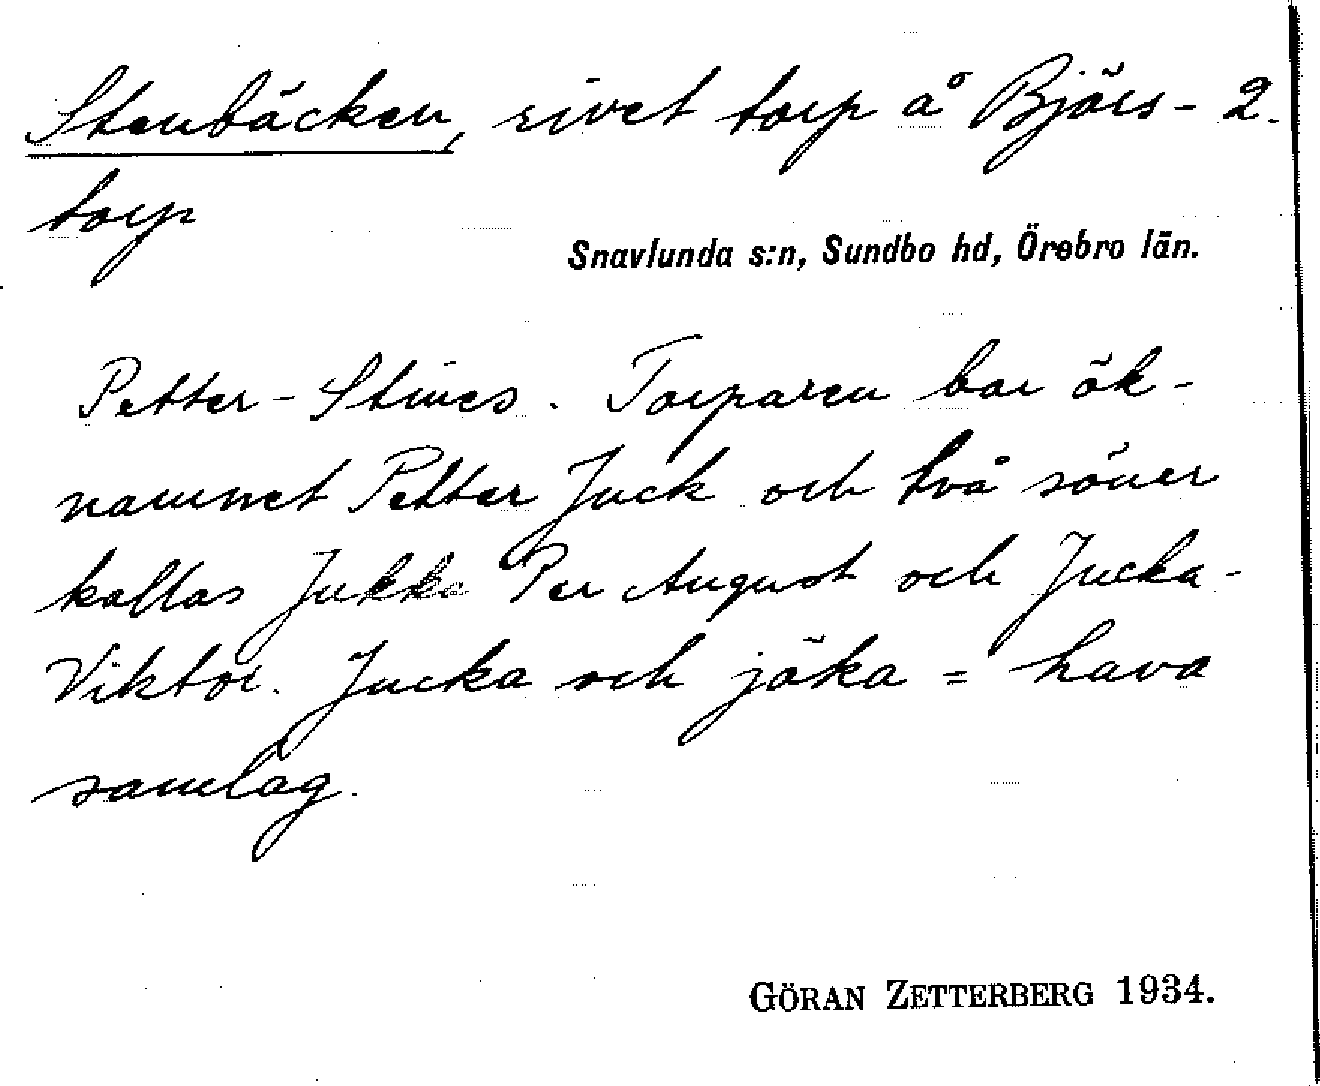 Stenbäcken, rivet torp å Björs- 2.
torp
Snavlunda s:n, Sundbo hd, Örebro län.
Petter-Stines. Torparen bar ök-
namnet Petter Juck och två söner
kallas Jukka Per August och Jucka-
Viktor. Jucka och jöka = hava
samlag.
GÖRAN ZETTERBERG 1934.